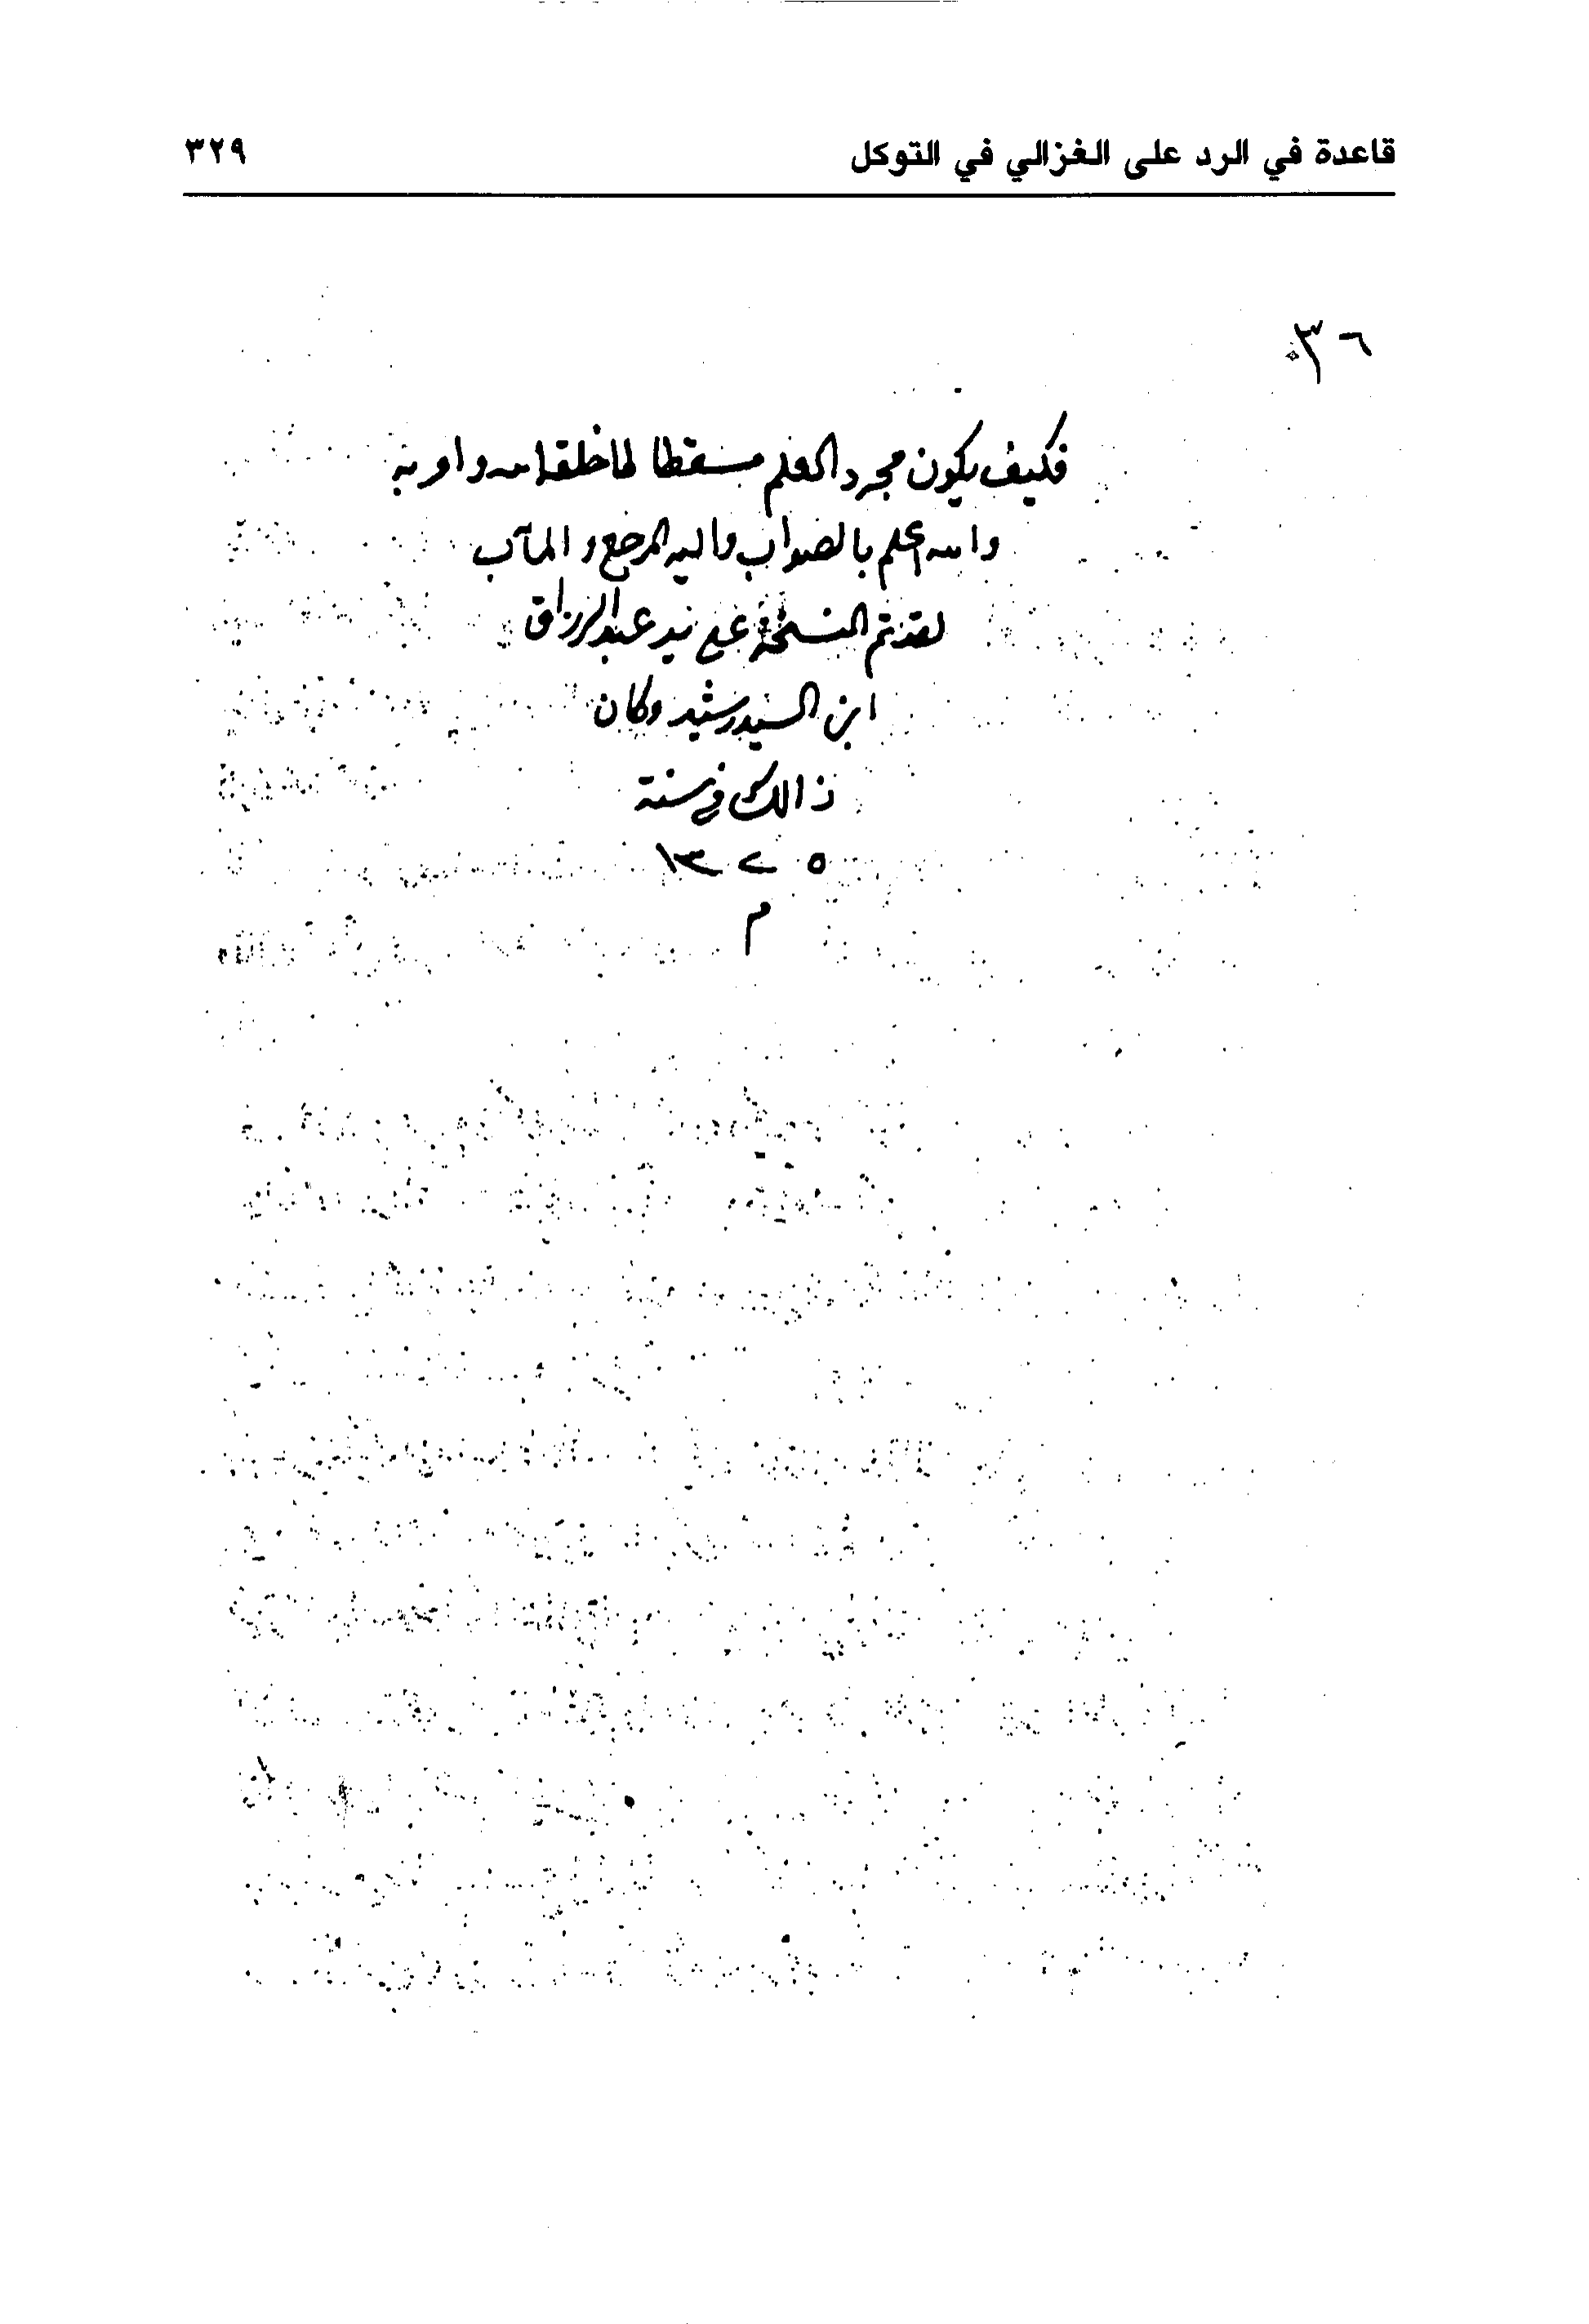 قاعدة في الرد على الغزالي في التوكل ٣٢٩
٣٦
فكيف يكون مجرد العلم مسقطا لما خلقه الله وامر به
والله اعلم بالصواب واليه المرجع والمآب
لقد تم النسخة على يد عبد الرزاق
ابن السيد رشيد وكان
ذالك في سنة
١٣٧٥
م